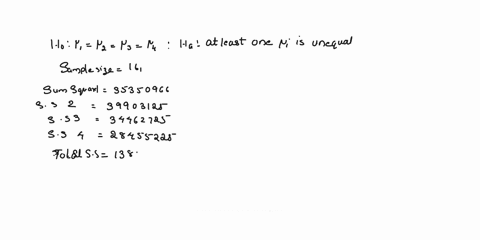 H₀: μ₁ = μ₂ = μ₃ = μ₄ : H₆: at least one μi is unequal
Sample size = 161
Sum Square1 = 35350966
S.S 2 = 39903125
S.S3 = 34462725
S.S 4 = 28455225
Total S.S = 138.